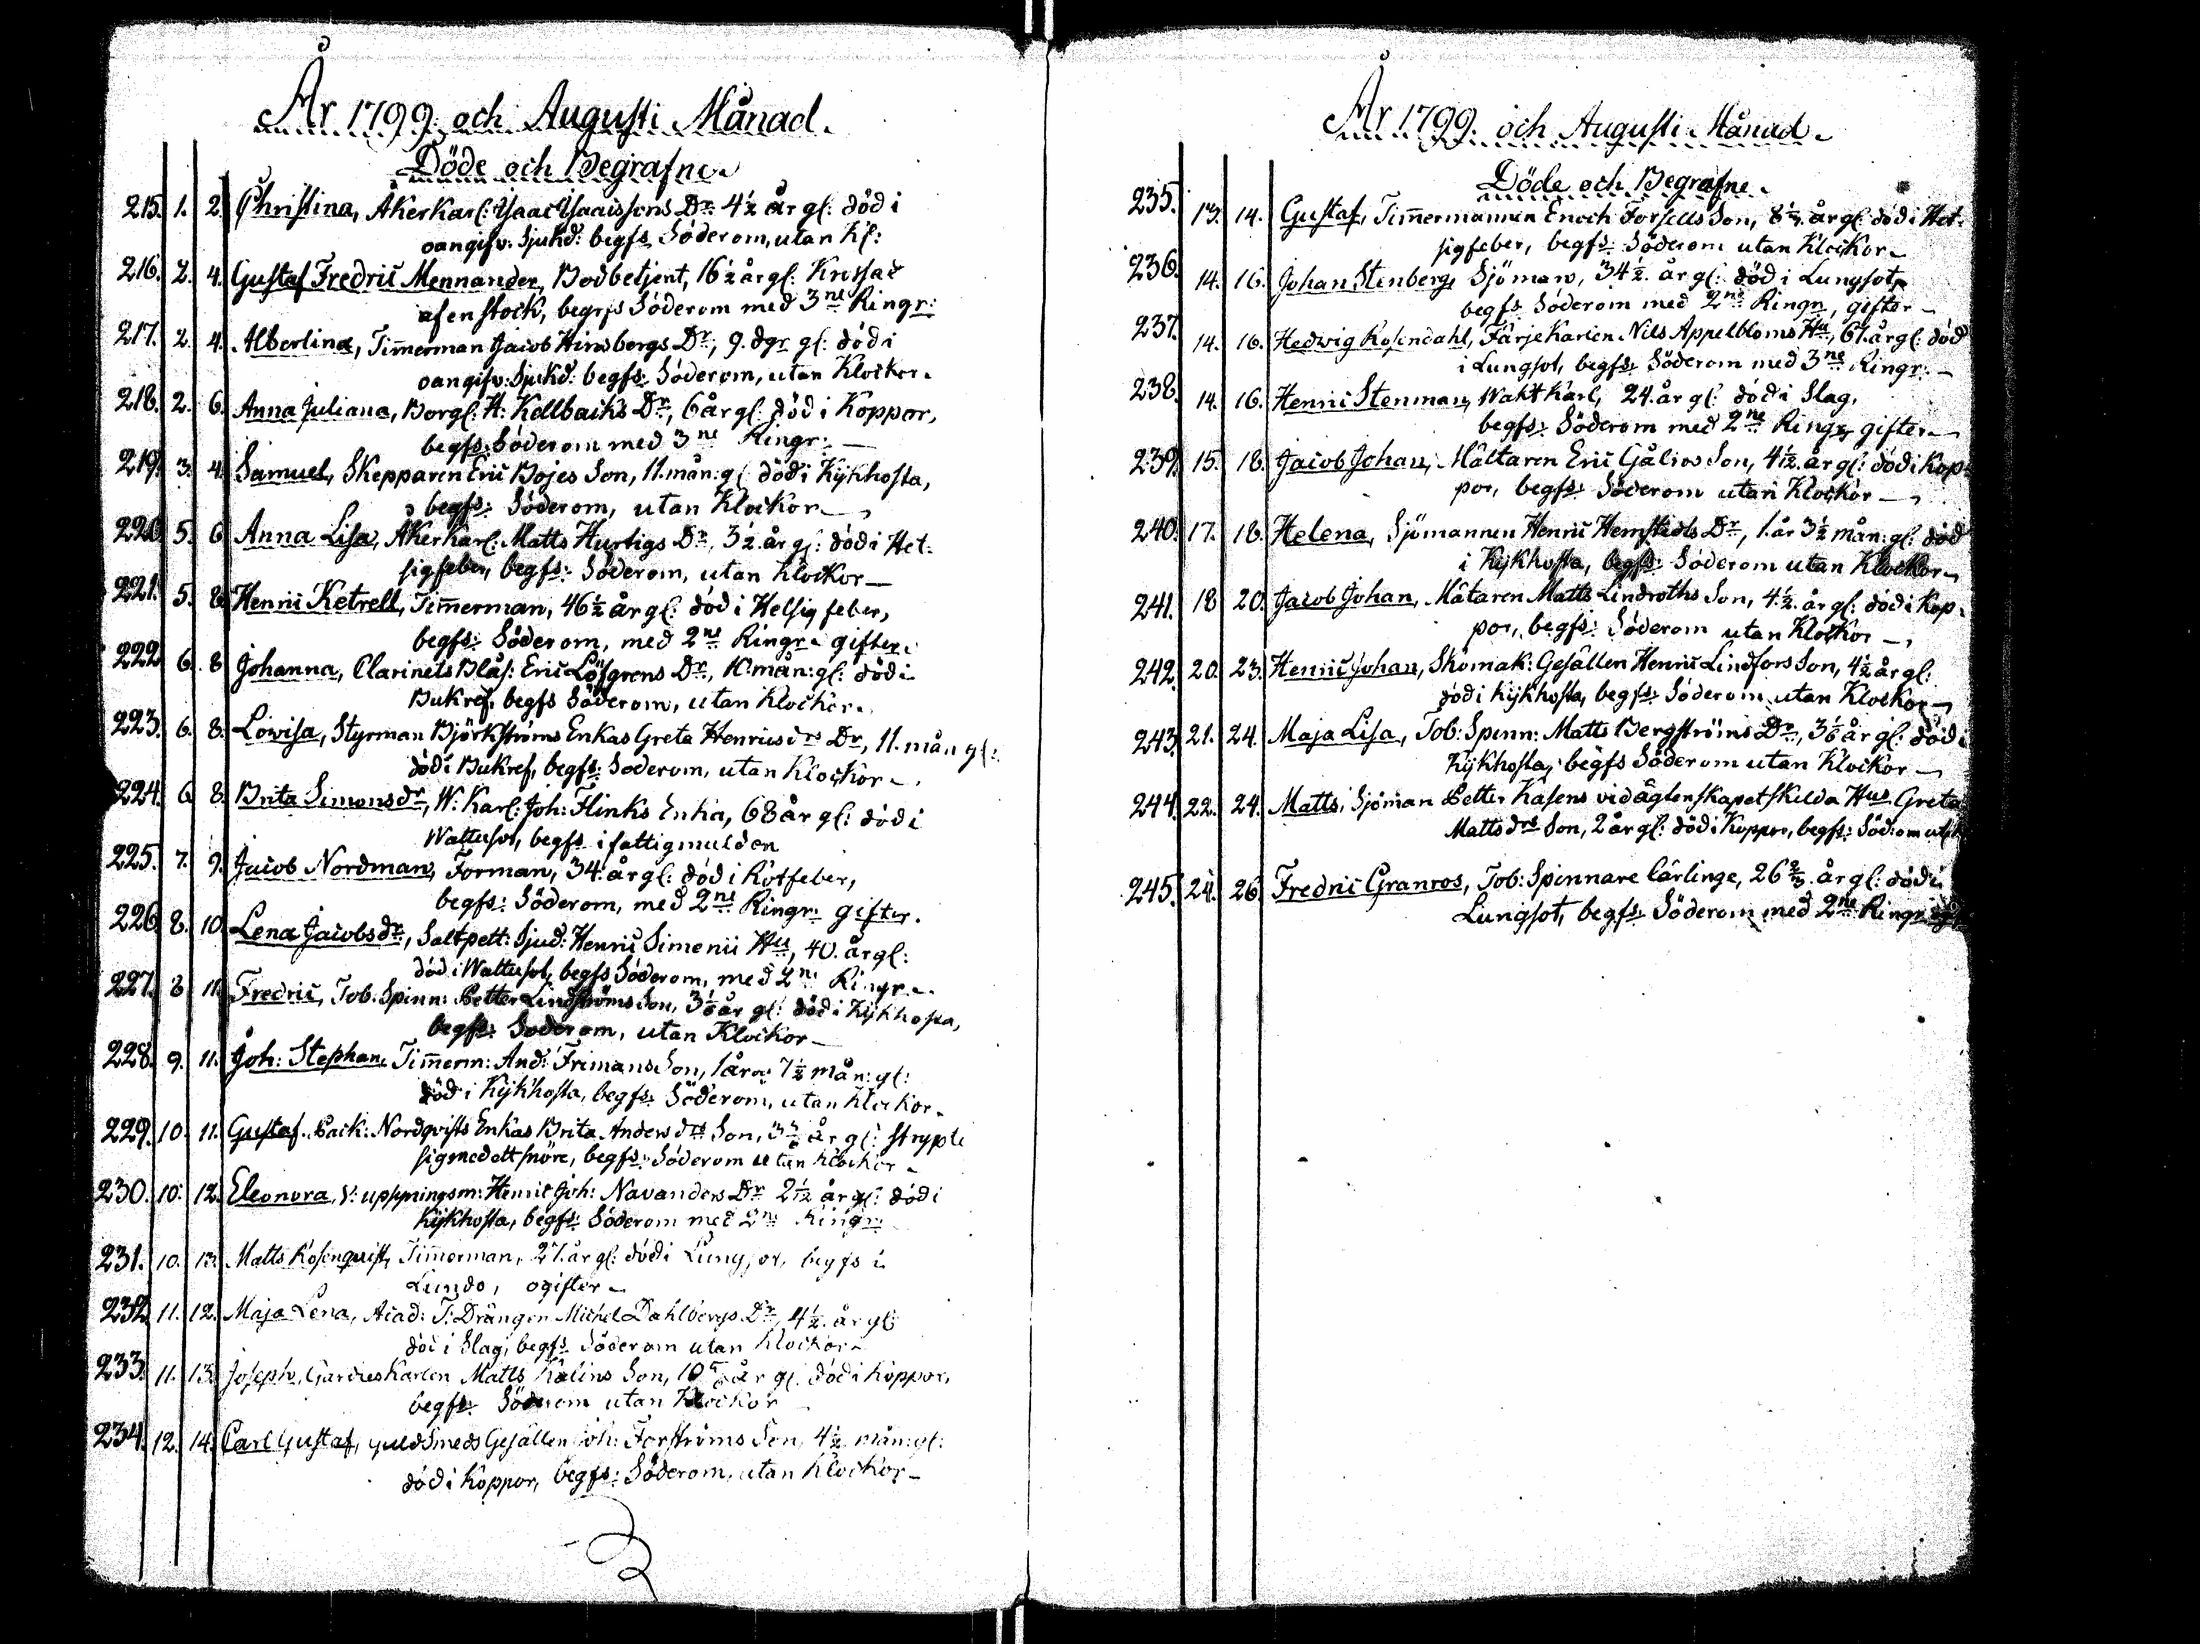 År 1799. och Augusti Månad.
Döde och Begrafne.
215. 1. 2. Christina, Åkerkarl: Isaac Isaacssons Dr. 4½ år gl: död i
oangifv: Sjukd: begfs Söderom, utan Kl:
216. 2. 4. Gustaf Fredric Mennander, Bodbetjent, 16½ år gl: Krossad
af en stock, begrfs Söderom med 3ne Ringr:
217. 2. 4. Albertina, Tim̃erman Jacob Hinsbergs Dr, 9. dgr gl: död i
oangifv: Sjukd: begfs: Söderom, utan Klockor.
218. 2. 6. Anna Juliana, Borgl: H: Kellbacks Dr, 6 år gl: död i Koppor,
begfs: Söderom med 3ne Ringr: —
219. 3. 4. Samuel, Skepparen Eric Bojes Son, 11. mån: gl död i Kijkhosta,
begfs: Söderom, utan Klockor —
220. 5. 6. Anna Lisa, Åkerkarl: Matts Hurtigs Dr, 3½ år gl: död i Het-
sigfeber, begfs: Söderom, utan Klockor —
221. 5. 8. Henric Ketrell, Tim̃erman, 46½ år gl: död i Hetsigfeber,
begfs: Söderom, med 2ne Ringr. gifter.
222. 6. 8. Johanna, Clarinets Blås: Eric Löfgrens Dr, 10. mån: gl: död i
Bukref, begfs Söderom, utan Klockor.
223. 6. 8. Lowisa, Styrman Björkströms Enkas Greta Henricsdrs Dr, 11. mån gl:
död i Bukref, begfs: Söderom, utan Klockor —
224. 6. 8. Brita Simonsdr, W: Karl: Joh: Flinks Enka, 68 år gl: död i
Wattusot, begfs i fattigmulden
225. 7. 9. Jacob Nordman, Forman, 34. år gl: död i Rötfeber,
begfs: Söderom, med 2ne Ringr: gifter.
226. 8. 10. Lena Jacobsdr, Saltpett: Sjud: Henric Simenii Hu, 40. år gl:
död i Wattusot, begfs Söderom, med 2ne Ringr.
227. 8. 11. Fredric, Tob: Spinn: Petter Lindströms Son, 3⅙ år gl: död i Kijkhosta,
begfs: Söderom, utan Klockor —
228. 9. 11. Joh: Stephan, Tim̃erm: And: Frimans Son, 1 år 7½ mån: gl:
död i Kijkhosta, begfs: Söderom, utan Klockor.
229. 10. 11. Gustaf. Pack: Nordqvists Enkas Brita Andersdrs Son, år gl: Strypte
sig med ett snöre, begfs: Söderom utan Klockor —
230. 10. 12. Eleonora, Henric Joh: Navanders Dr år gl: död i
Kijkhosta, begfs: Söderom med 2ne Ringr:
231. 10. 13. Matts Rosenqvist, Tim̃erman, 27. år gl: död i Lungsot, begfs i
Lundo, ogifter —
232. 11. 12. Maja Lena, Acad: T: Drängen Michel Dahlbergs Dr, 4½ år gl:
död i Slag, begfs Söderom utan Klockor —
233. 11. 13. Joseph, Gardieskarlen Matts Kalins Son, år gl: död i Koppor,
begfs: Söderom utan Klockor
234. 12. 14. Carl Gustaf, Guldsmeds Gesällen Joh: Forströms Son, 4½ mån: gl:
död i Koppor, begfs: Söderom, utan Klockor —
År 1799. och Augusti Månad.
Döde och Begrafne.
235. 13. 14. Gustaf, Tim̃ermannen Enoch Forsells Son, år gl: död i Het-
sigfeber, begfs: Söderom utan Klockor —
236. 14. 16. Johan Stenberg, Sjöman, 34½. år gl: död i Lungsot,
begfs Söderom med 2ne Ringr, gifter —
237. 14. 16. Hedwig Rosendahl, Färjekarlen Nils Appelbloms Hu, 67. år gl: död
i Lungsot, begfs: Söderom med 3ne Ringr: —
238. 14. 16. Henric Stenman, Wakt Karl, 24. år gl: död i Slag,
begfs: Söderom med 2ne Ringr, gifter —
239. 15. 18. Jacob Johan, Mältaren Eric Gålios Son, år gl: död i Kop-
por, begfs: Söderom utan Klockor —
240. 17. 18. Helena, Sjömannen Henric Hemsteds Dr, 1. år 3½ mån: gl: död
i Kijkhosta, begfs: Söderom utan Klockor —
241. 18 20. Jacob Johan, Mätaren Matts Lindroths Son, 4½. år gl: död i Kop-
por, begfs: Söderom utan Klockor —
242. 20. 23. Henric Johan, Skomak: Gesällen Henric Lindfors Son, 4½ år gl:
död i Kijkhosta, begfs: Söderom utan Klockor —
243. 21. 24. Maja Lisa, Tob: Spinn: Matts Bergströms Dr, 3⅙ år gl: död i
Kijkhosta, begfs Söderom utan Klockor —
244. 22. 24. Matts, Sjöman Petter Kasens vid ägtenskapet skilda Hus Greta
Mattsdrs Son, 2 år gl: död i Koppor, begfs: Söd:om
245. 24. 26. Fredric Granros, Tob: Spinnare lärlinge, 26⅔ år gl: död i
Lungsot, begfs: Söderom med 2ne Ringr